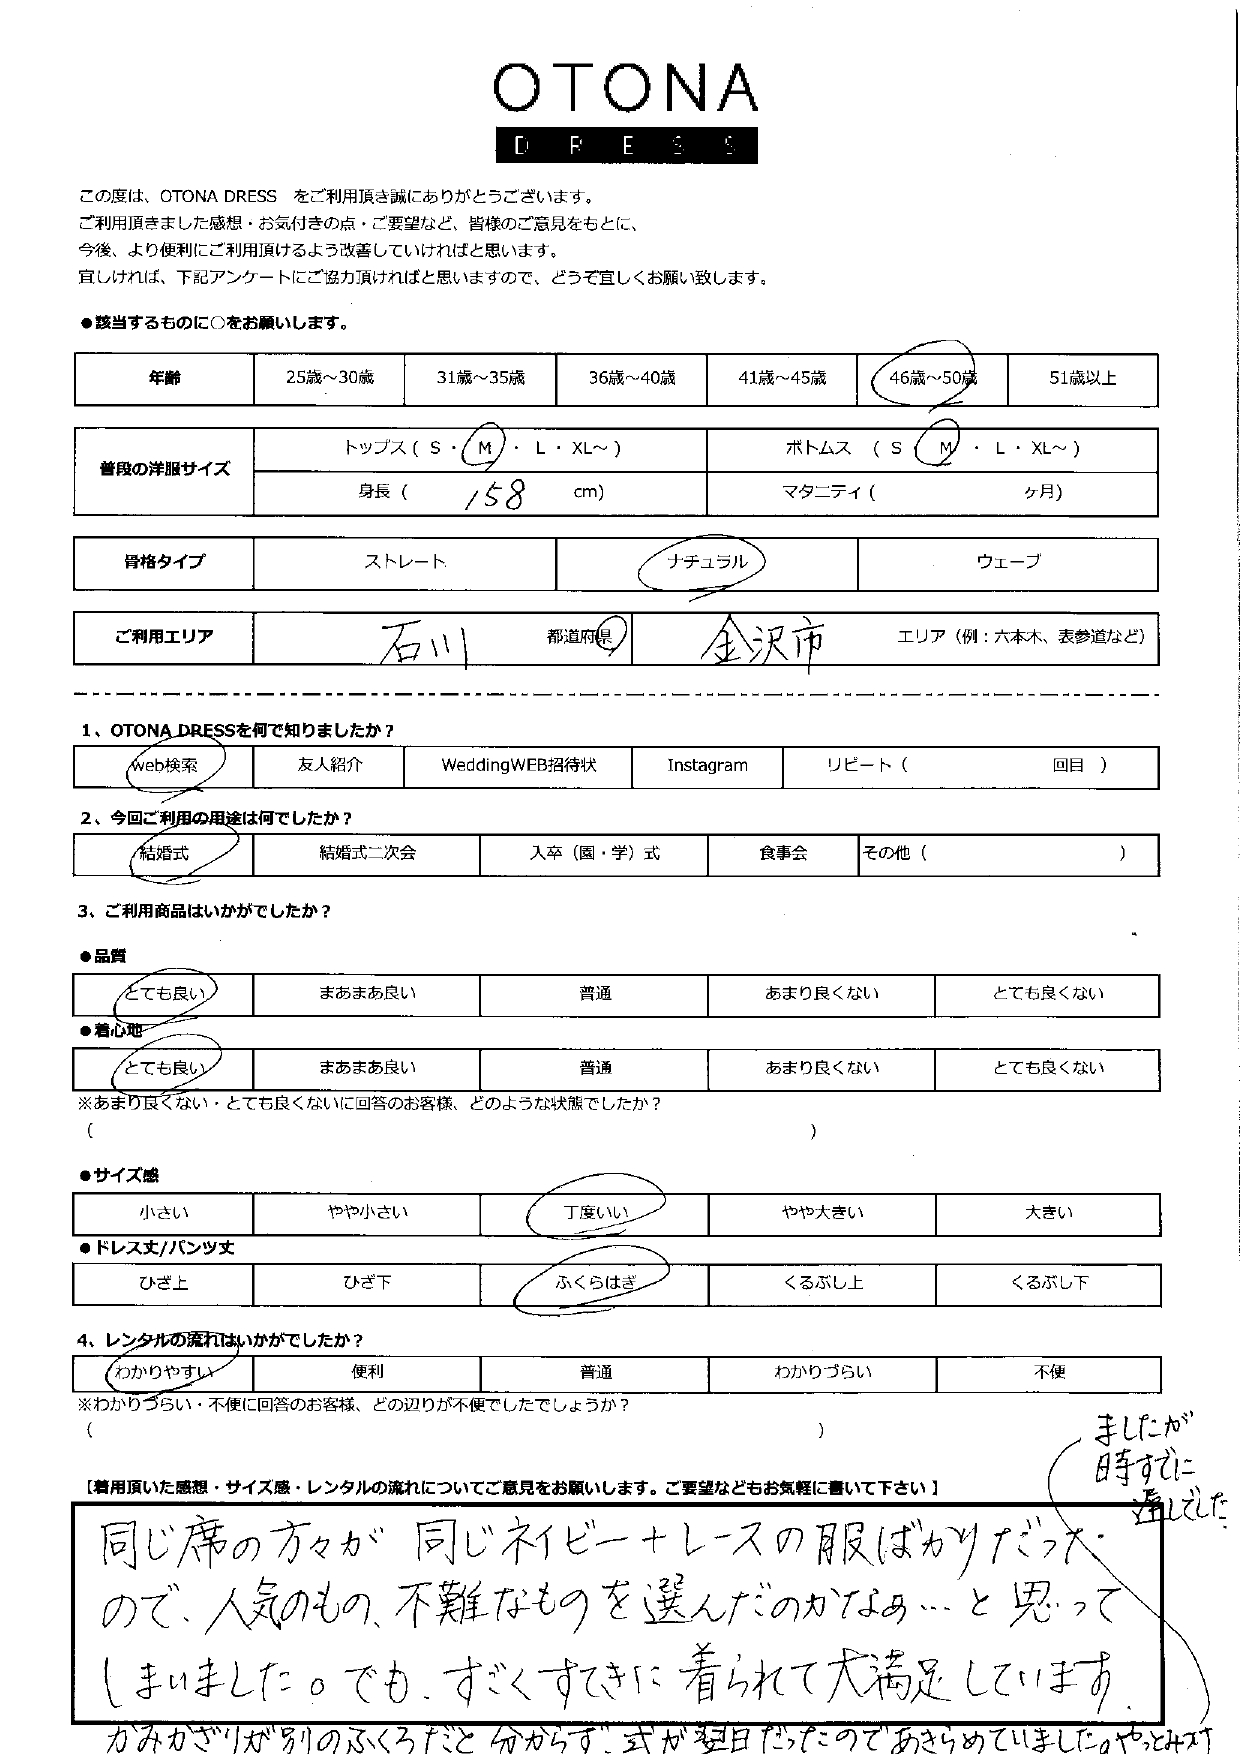 OTONA
DRESS
この度は、OTONA DRESS をご利用頂き誠にありがとうございます。
ご利用頂きました感想・お気付きの点・ご要望など、皆様のご意見をもとに、
今後、より便利にご利用頂けるよう改善していければと思います。
宜しければ、下記アンケートにご協力頂ければと思いますので、どうぞ宜しくお願い致します。
●該当するものに○をお願いします。
年齢 25歳～30歳 31歳～35歳 36歳～40歳 41歳～45歳 46歳～50歳 51歳以上
普段の洋服サイズ トップス ( S ・ M ・ L ・ XL～ ) ボトムス ( S ・ M ・ L ・ XL～ )
身長 ( 158 cm) マタニティ ( ヶ月)
骨格タイプ ストレート ナチュラル ウェーブ
ご利用エリア 石川 都道府県 金沢市 エリア（例：六本木、表参道など）
1、OTONA DRESSを何で知りましたか？
web検索 友人紹介 WeddingWEB招待状 Instagram リピート ( 回目 )
2、今回ご利用の用途は何でしたか？
結婚式 結婚式二次会 入卒（園・学）式 食事会 その他 ( )
3、ご利用商品はいかがでしたか？
●品質
とても良い まあまあ良い 普通 あまり良くない とても良くない
●着心地
とても良い まあまあ良い 普通 あまり良くない とても良くない
※あまり良くない・とても良くないに回答のお客様、どのような状態でしたか？
( )
●サイズ感
小さい やや小さい 丁度いい やや大きい 大きい
●ドレス丈/パンツ丈
ひざ上 ひざ下 ふくらはぎ くるぶし上 くるぶし下
4、レンタルの流れはいかがでしたか？
わかりやすい 便利 普通 わかりづらい 不便
※わかりづらい・不便に回答のお客様、どの辺りが不便でしたでしょうか？
( )
【着用頂いた感想・サイズ感・レンタルの流れについてご意見をお願いします。ご要望などもお気軽に書いて下さい】
同じ席の方々が 同じネイビー＋レースの服ばかりだった
ので、人気のもの、不難なものを選んだのかなぁ…と思って
しまいました。でも、すごくすてきに着られて大満足しています。
かみかざりが別のふくろだと分からず、式が翌日だったのであきらめていました。やっとみつけ
ましたが
時すでに
遅しでした。